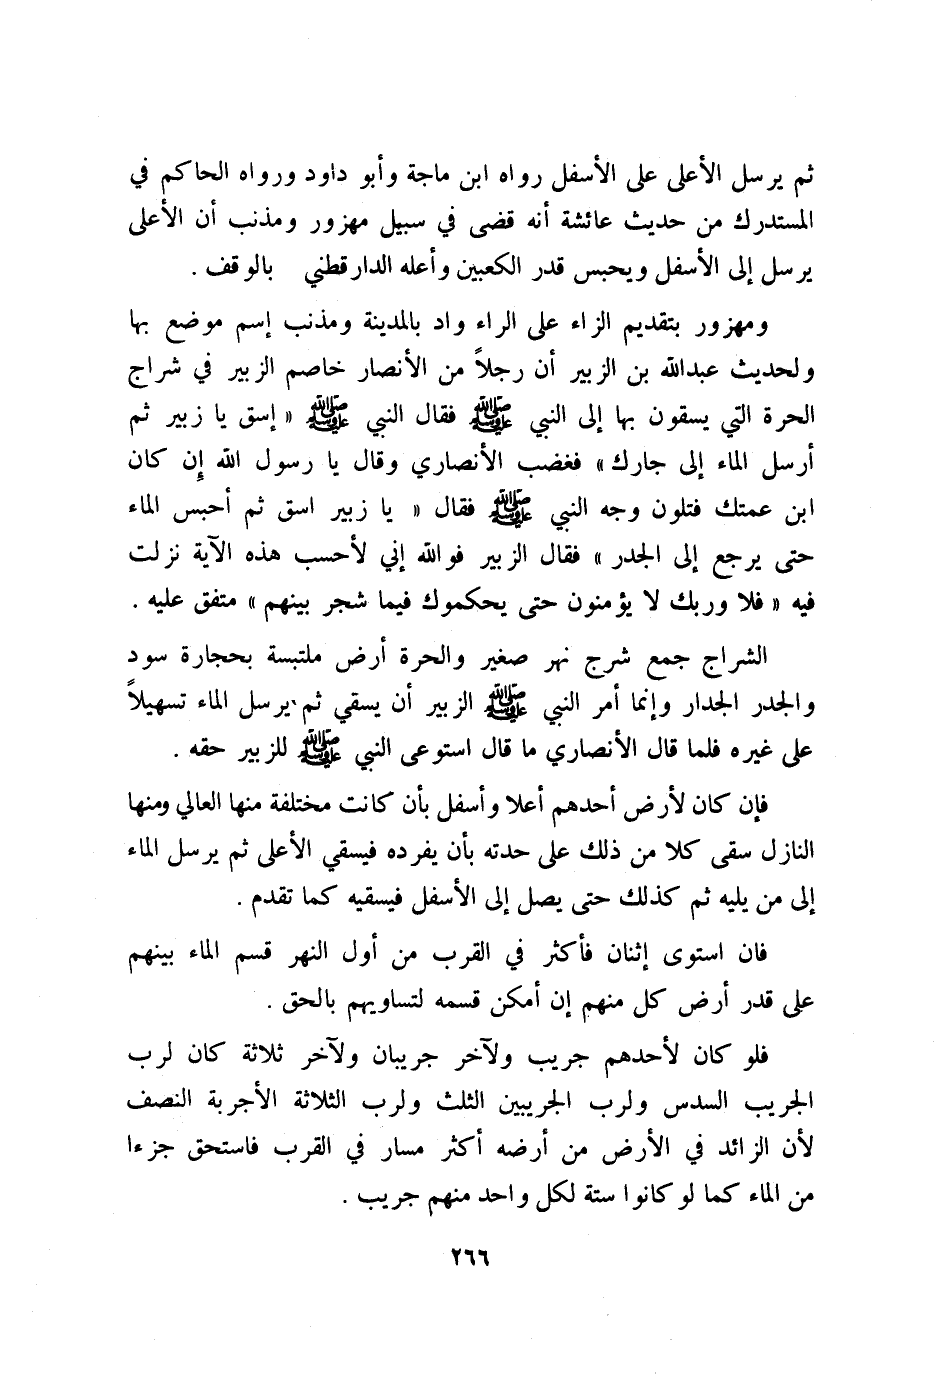 ثم يرسل الأعلى على الأسفل رواه ابن ماجة وأبو داود ورواه الحاكم في
المستدرك من حديث عائشة أنه قضى في سبيل مهزور ومذنب أن الأعلى
يرسل إلى الأسفل ويحبس قدر الكعبين وأعله الدارقطني بالوقف .
ومهزور بتقديم الزاء على الراء واد بالمدينة ومذنب إسم موضع بها
ولحديث عبدالله بن الزبير أن رجلاً من الأنصار خاصم الزبير في شراج
الحرة التي يسقون بها إلى النبي ﷺ فقال النبي ﷺ « إسق يا زبير ثم
أرسل الماء إلى جارك » فغضب الأنصاري وقال يا رسول الله إِن كان
ابن عمتك فتلون وجه النبي ﷺ فقال « يا زبير اسق ثم أحبس الماء
حتى يرجع إلى الجدر » فقال الزبير فوالله إني لأحسب هذه الآية نزلت
فيه « فلا وربك لا يؤمنون حتى يحكموك فيما شجر بينهم » متفق عليه .
الشراج جمع شرج نهر صغير والحرة أرض ملتبسة بحجارة سود
والجدر الجدار وإنما أمر النبي ﷺ الزبير أن يسقي ثم يرسل الماء تسهيلاً
على غيره فلما قال الأنصاري ما قال استوعى النبي ﷺ للزبير حقه .
فإن كان لأرض أحدهم أعلا وأسفل بأن كانت مختلفة منها العالي ومنها
النازل سقى كلا من ذلك على حدته بأن يفرده فيسقي الأعلى ثم يرسل الماء
إلى من يليه ثم كذلك حتى يصل إلى الأسفل فيسقيه كما تقدم .
فان استوى إثنان فأكثر في القرب من أول النهر قسم الماء بينهم
على قدر أرض كل منهم إن أمكن قسمه لتساويهم بالحق .
فلو كان لأحدهم جريب ولآخر جريبان ولآخر ثلاثة كان لرب
الجريب السدس ولرب الجريبين الثلث ولرب الثلاثة الأجربة النصف
لأن الزائد في الأرض من أرضه أكثر مسار في القرب فاستحق جزءا
من الماء كما لو كانوا ستة لكل واحد منهم جريب .
٢٦٦